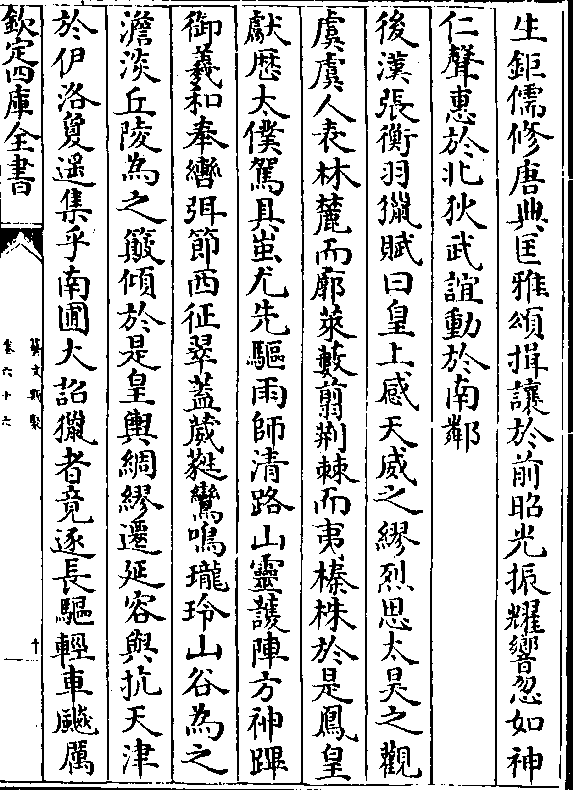 生鉅儒修唐典匡雅頌揖讓於前昭光振耀響忽如神
仁聲惠於北狄武誼動於南鄰
後漢張衡羽獵賦曰皇上感天威之繆烈思太昊之觀
虞虞人表林麓而廓萊藪翦荆棘而夷榛株於是鳳皇
獻歴太僕駕具蚩尤先驅雨師清路山靈護陣方神蹕
御羲和奉轡弭節西征翠蓋葳蕤鸞鳴瓏玲山谷為之
澹淡丘陵為之簸傾於是皇輿綢繆遷延容與抗天津
於伊洛敻遥集乎南圃大詔獵者竟逐長驅輕車飈厲
欽定四庫全書
藝文類聚
卷六十六
十